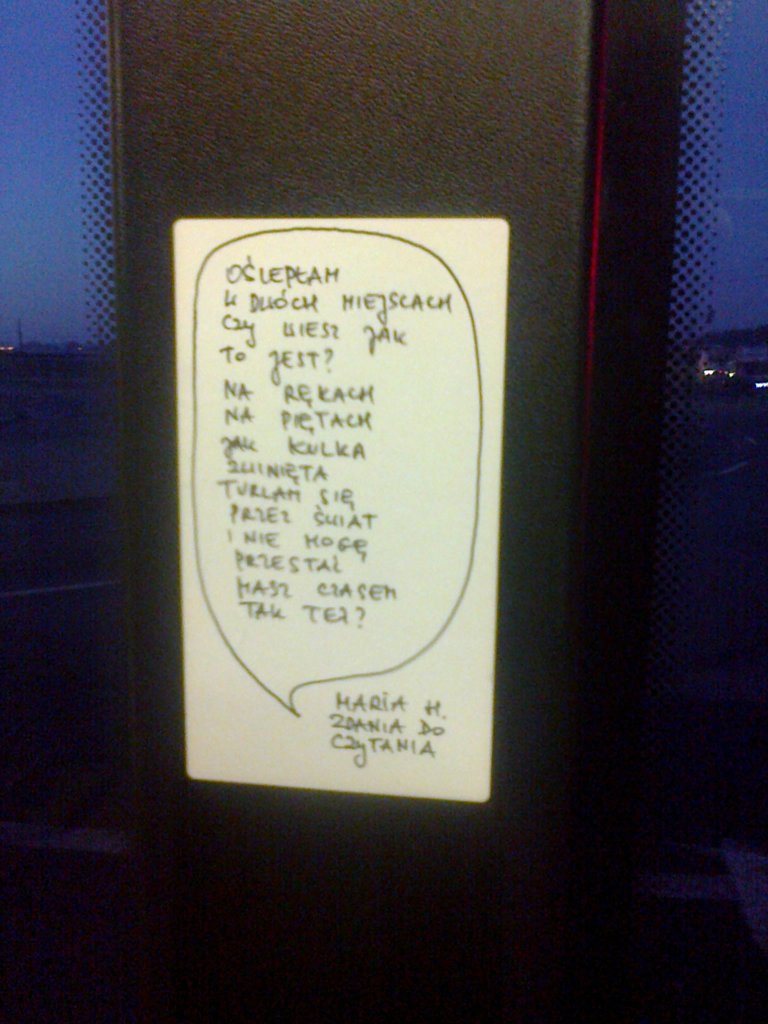 OŚLEPŁAM
W DWÓCH MIEJSCACH
CZY WIESZ JAK
TO JEST?
NA RĘKACH
NA PIĘTACH
JAK KULKA
ZWINIĘTA
TURLAM SIĘ
PRZEZ ŚWIAT
I NIE MOGĘ
PRZESTAĆ
MASZ CZASEM
TAK TEŻ?
MARIA M.
ZDANIA DO
CZYTANIA